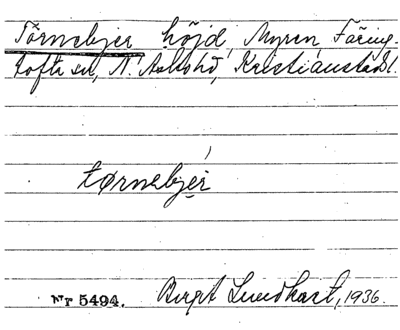 Törnebjer höjd, Myren, Färing-
tofta sn, N. Åsbohd, Kristianstads l.
tørnebjer
Nr 5494. Birgit Lundkart, 1936.